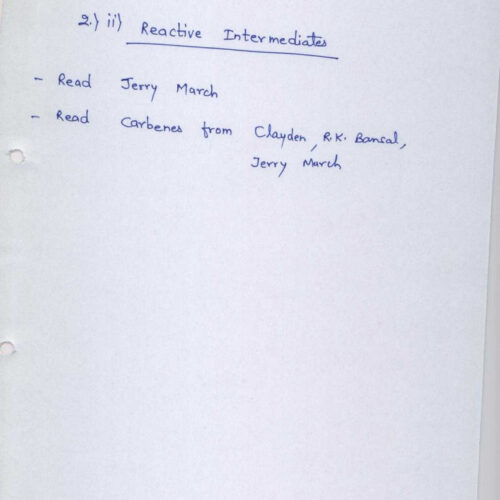 2.) ii) Reactive Intermediates
- Read Jerry March
- Read Carbenes from Clayden, R.K. Bansal,
Jerry March